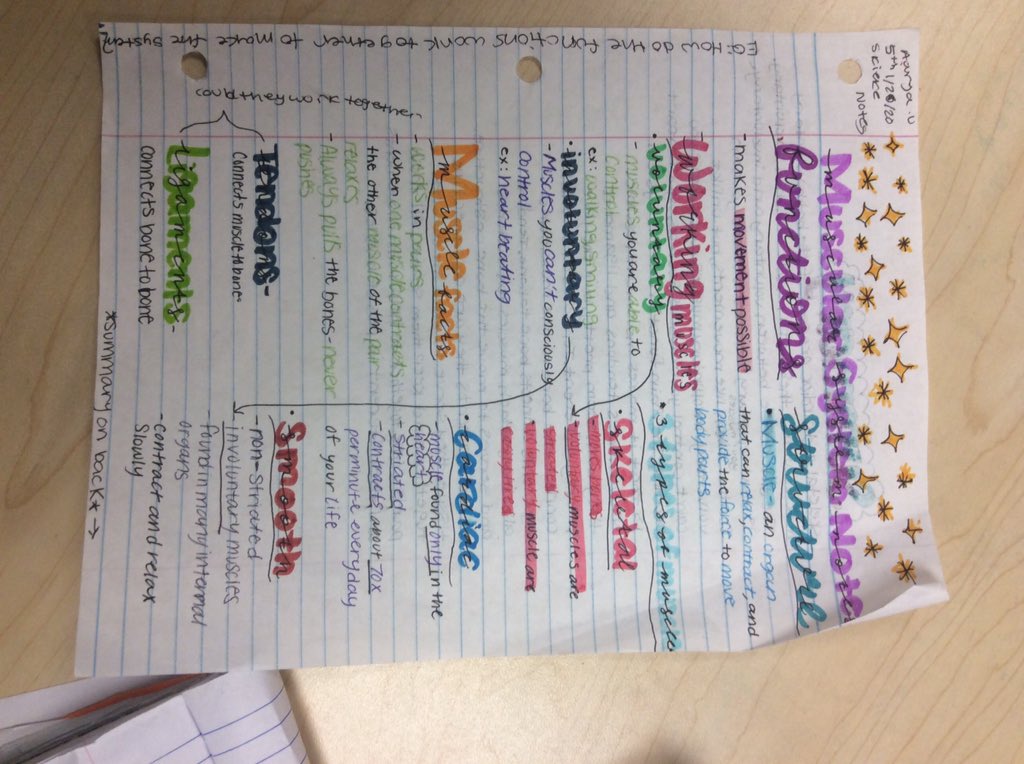 Aarya.U
5th 1/28/20
Science
Notes
EQ: How do the functions work together to make the system?
Muscular System Notes
Functions
- makes movement possible
Working muscles
• voluntary
- muscles you are able to
control
ex: walking, smiling
• involuntary
- Muscles you can't consciously
control
ex: heart beating
Muscle facts
- works in pairs
- when one muscle contracts
the other muscle of the pair
relaxes
- Always pulls the bones - never
pushes
Tendons -
connects muscle to bone
Ligaments -
connects bone to bone
Structure
• Muscle - an organ
that can relax, contract, and
provide the force to move
body parts
* 3 types of muscle
• Skeletal
- voluntary muscles are
muscle are
• Cardiac
- muscle found only in the
heart
- Striated
- contracts about 70x
per minute everyday
of your life
• Smooth
- non-striated
- involuntary muscles
- found in many internal
organs
- contract and relax
slowly
*Summary on back* →